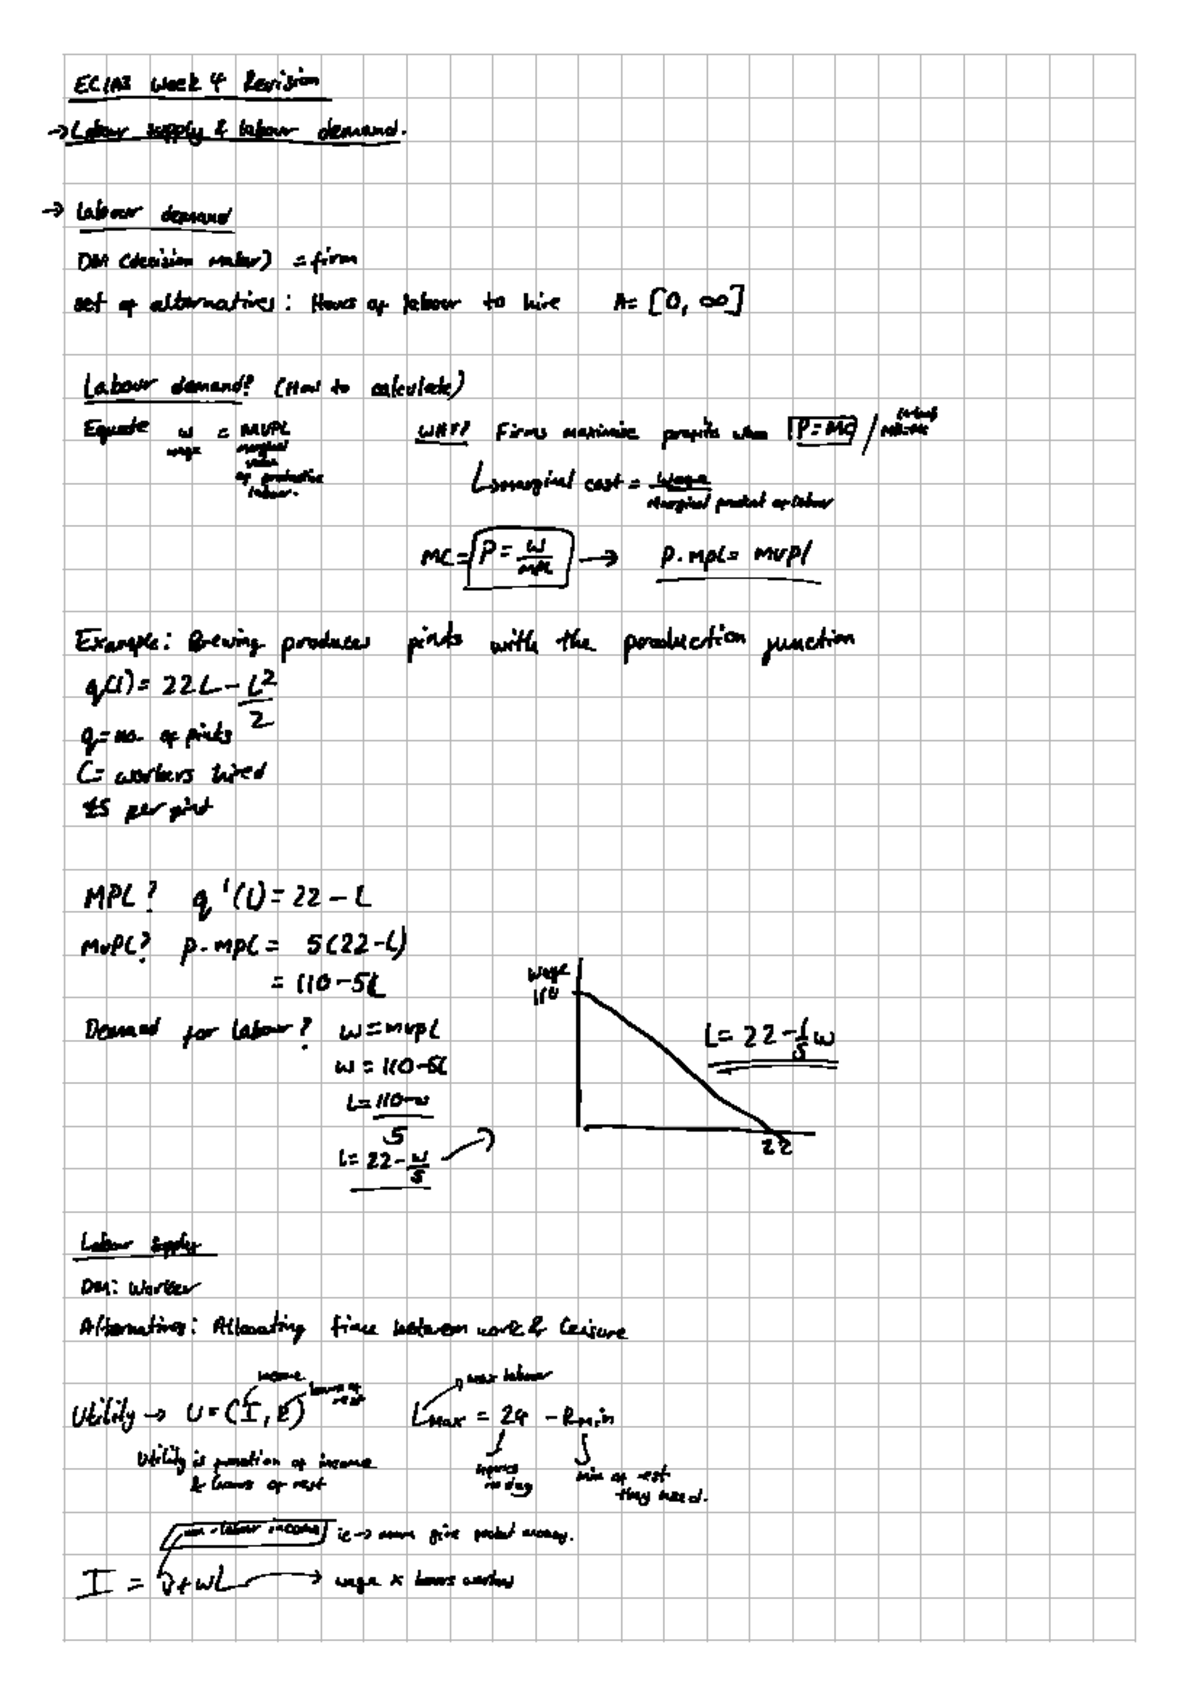 EC1A3 Week 4 Revision
→ Labour supply & labour demand.
→ Labour demand
DM (decision maker) = firm
set of alternatives: Hours of labour to hire A= [0, ∞]
Labour demand? (How to calculate)
Equate w = MVPL WHY? Firms maximise profits when P=MC / MR=MC
wage marginal value of productive labour.
↳ marginal cost = wage / Marginal product of labour
MC = P = w/MPL → P.MPL = MVPL
Example: Brewing produces pints with the production function
q(l) = 22L - L²/2
q= no. of pints
L= workers hired
£5 per pint
MPL? q'(L) = 22 - L
MVPL? P.MPL = 5(22-L)
= 110-5L
wage
110
Demand for labour? w = MVPL
L= 22 - 1/5 w
w = 110-5L
L= 110-w/5
22
L= 22 - w/5
Labour Supply
DM: Worker
Alternatives: Allocating time between work & leisure
income hours of rest max labour
Utility → U = (I, R) Lmax = 24 - Rmin
Utility is function of income & hours of rest
hours in day
min of rest they need.
non-labour income ie → mum give pocket money.
I = v+wL → wage x hours worked